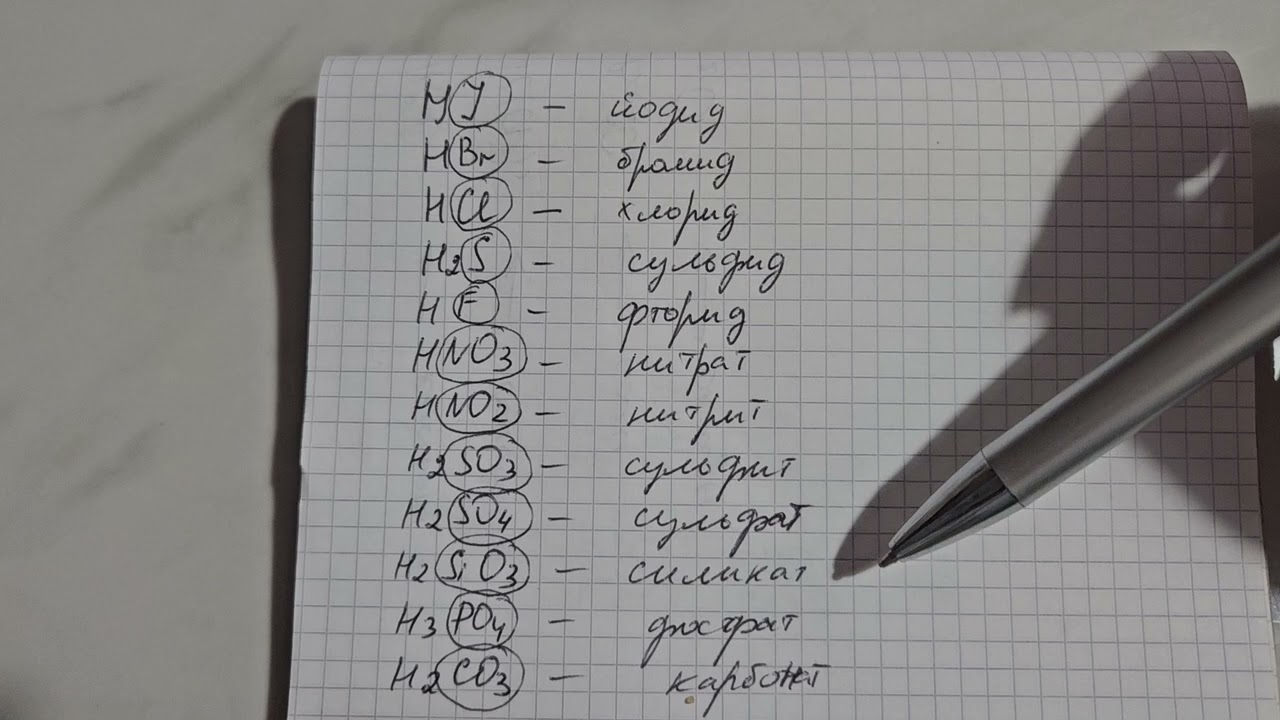 HJ - йодид
HBr - бромид
HCl - хлорид
H2S - сульфид
HF - фторид
HNO3 - нитрат
HNO2 - нитрит
H2SO3 - сульфит
H2SO4 - сульфат
H2SiO3 - силикат
H3PO4 - фосфат
H2CO3 - карбонат